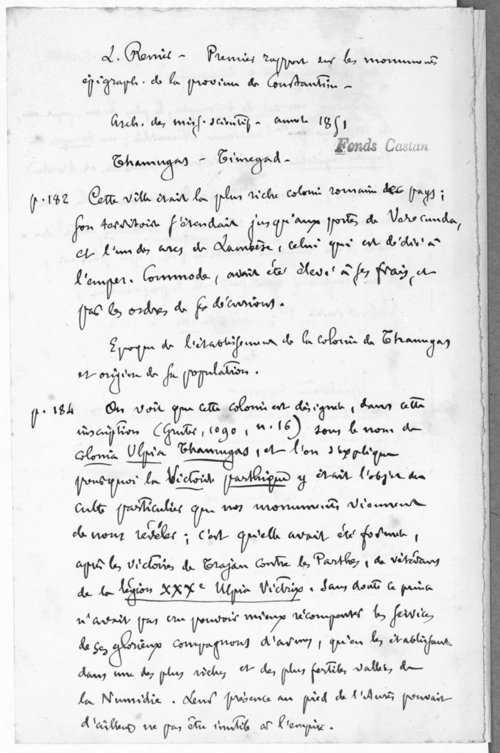 L. Renier – Premier rapport sur les monuments
épigraph. de la province de Constantine –
Arch. des miss. scientif. – année 1851
Fonds Castan
Thamugas – Timegad –
p. 182 Cette ville était la plus riche colonie romaine des pays ;
son territoire s'étendait jusqu'aux portes de Verecunda,
et l'un des arcs de Lambèse, celui qui est dédié à
l'emper. Commode, avait été élevé à ses frais, et
par les ordres de ses décurions.
Epoque de l'établissement de la colonie de Thamugas
et origine de sa population.
p. 184 On voit que cette colonie est désignée, dans cette
inscription (Gruter, 1090, n. 16) sous le nom de
Colonia Ulpia Thamugas, et l'on s'explique
pourquoi la Victoire parthique y était l'objet du
culte particulier que nos monuments viennent
de nous révéler ; c'est qu'elle avait été formée,
après les victoires de Trajan contre les Parthes, de vétérans
de la légion XXXe Ulpia Victrix. Sans doute ce prince
n'avait pas cru pouvoir mieux récompenser les services
de ses glorieux compagnons d'armes, qu'en les établissant
dans une des plus riches et des plus fertiles vallées de
la Numidie. Leur présence au pied de l'Aurès pouvait
d'ailleurs ne pas être inutile à l'empire.